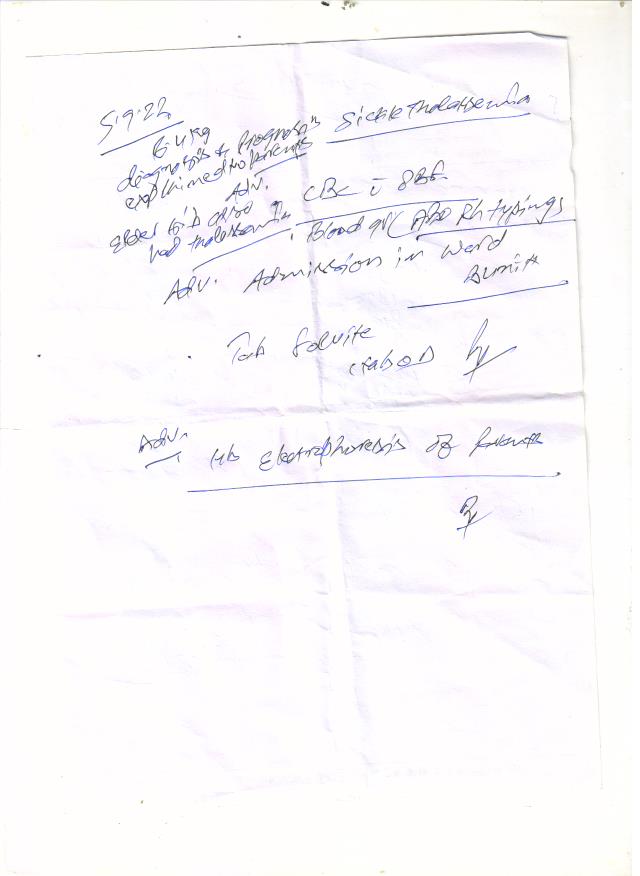 5.9.22
6.4 kg
diagnosis & Prognosis Sickle thalassemia
explained to parents
Adv. CBC c̄ PBF
elder sib also had thalassemia
Blood gr (ABO Rh typings
Adv. Admission in ward
Tab Folvite
Adv. Hb Electrophoresis of Parents